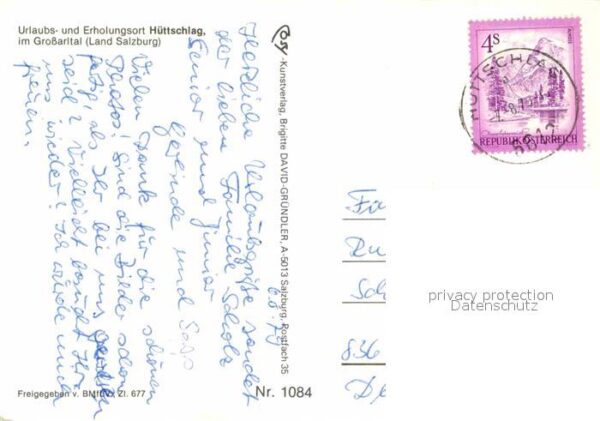 Urlaubs- und Erholungsort Hüttschlag,
im Großarltal (Land Salzburg)
6.8.79
Herzliche Urlaubsgrüße sendet
der lieben Familie
Senior und Junior
Gerlinde und Sepp
Vielen Dank für die schönen
Sind die Bilder schon
fertig als Ihr bei uns
seid? Vielleicht kommt Ihr
uns wieder! Ich würde mich
freuen.
Freigegeben v. BMfLV, Zl. 677
Nr. 1084
-Kunstverlag, Brigitte DAVID-GRÜNDLER, A-5013 Salzburg, Postfach 35
4S
REPUBLIK ÖSTERREICH
HÜTTSCHLAG
5612
Fa
Ru
Sch
836
De
privacy protection
Datenschutz